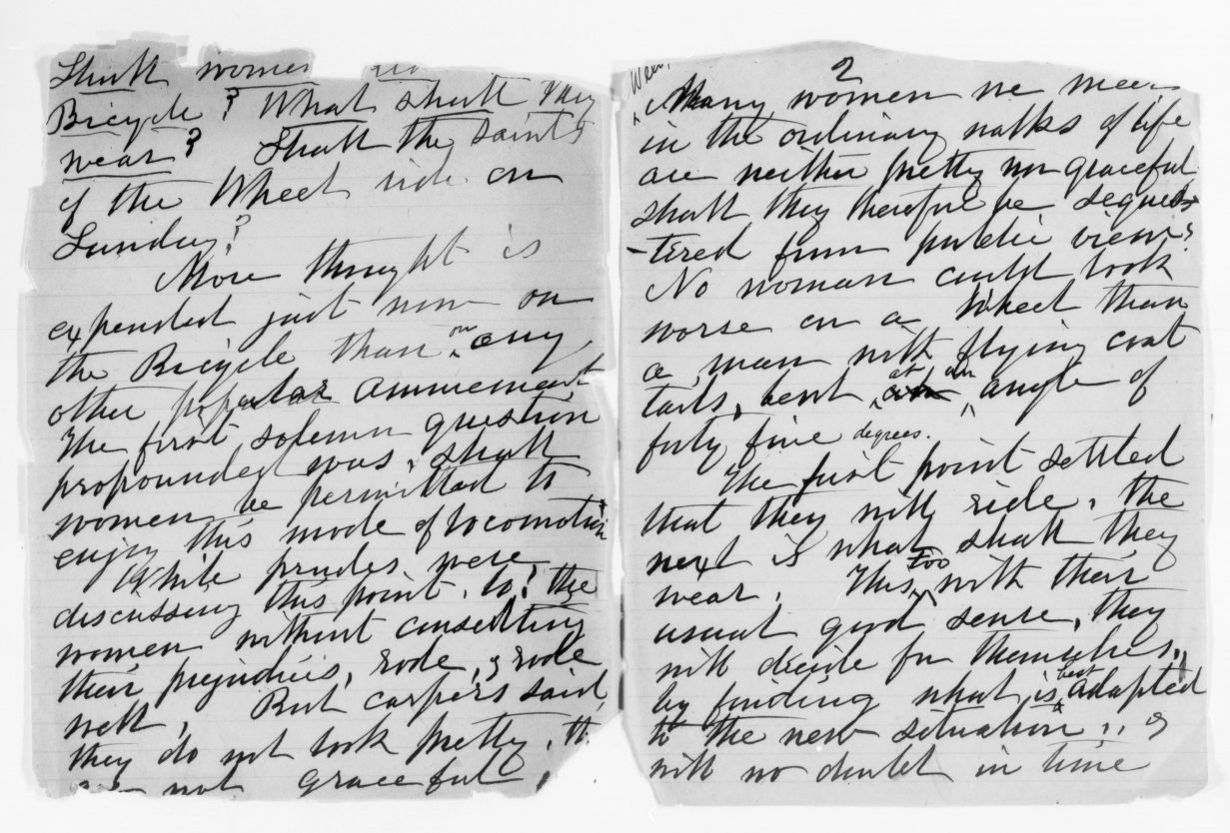 Shall women
Bicycle? What shall they
wear? Shall the saints
of the Wheel ride on
Sunday?
More thought is
expended just now on
the Bicycle than on any
other popular amusement
The first solemn question
propounded was, shall
women be permitted to
enjoy this mode of locomotion
While prudes were
discussing this point, lo! the
women without consulting
their prejudices, rode, & rode
well, But carpers said,
they do not look pretty,
not graceful,
2
Well,
Many women we meet
in the ordinary walks of life
are neither pretty nor graceful
shall they therefore be seques
-tered from public view?
No woman could look
worse on a wheel than
a man with flying coat
tails, bent at an angle of
forty five degrees.
The first point settled
that they will ride, the
next is what shall they
wear. This, too with their
usual good sense, they
will decide for themselves,
by finding what is best adapted
to the new situation, &
will no doubt in time